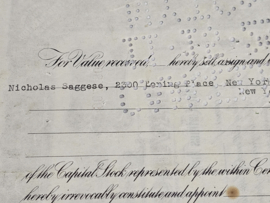 For Value received ... hereby sell, assign and
Nicholas Saggese, 2300 Loring Place New York
New Yo
of the Capital Stock represented by the within Cer
hereby irrevocably constitute and appoint